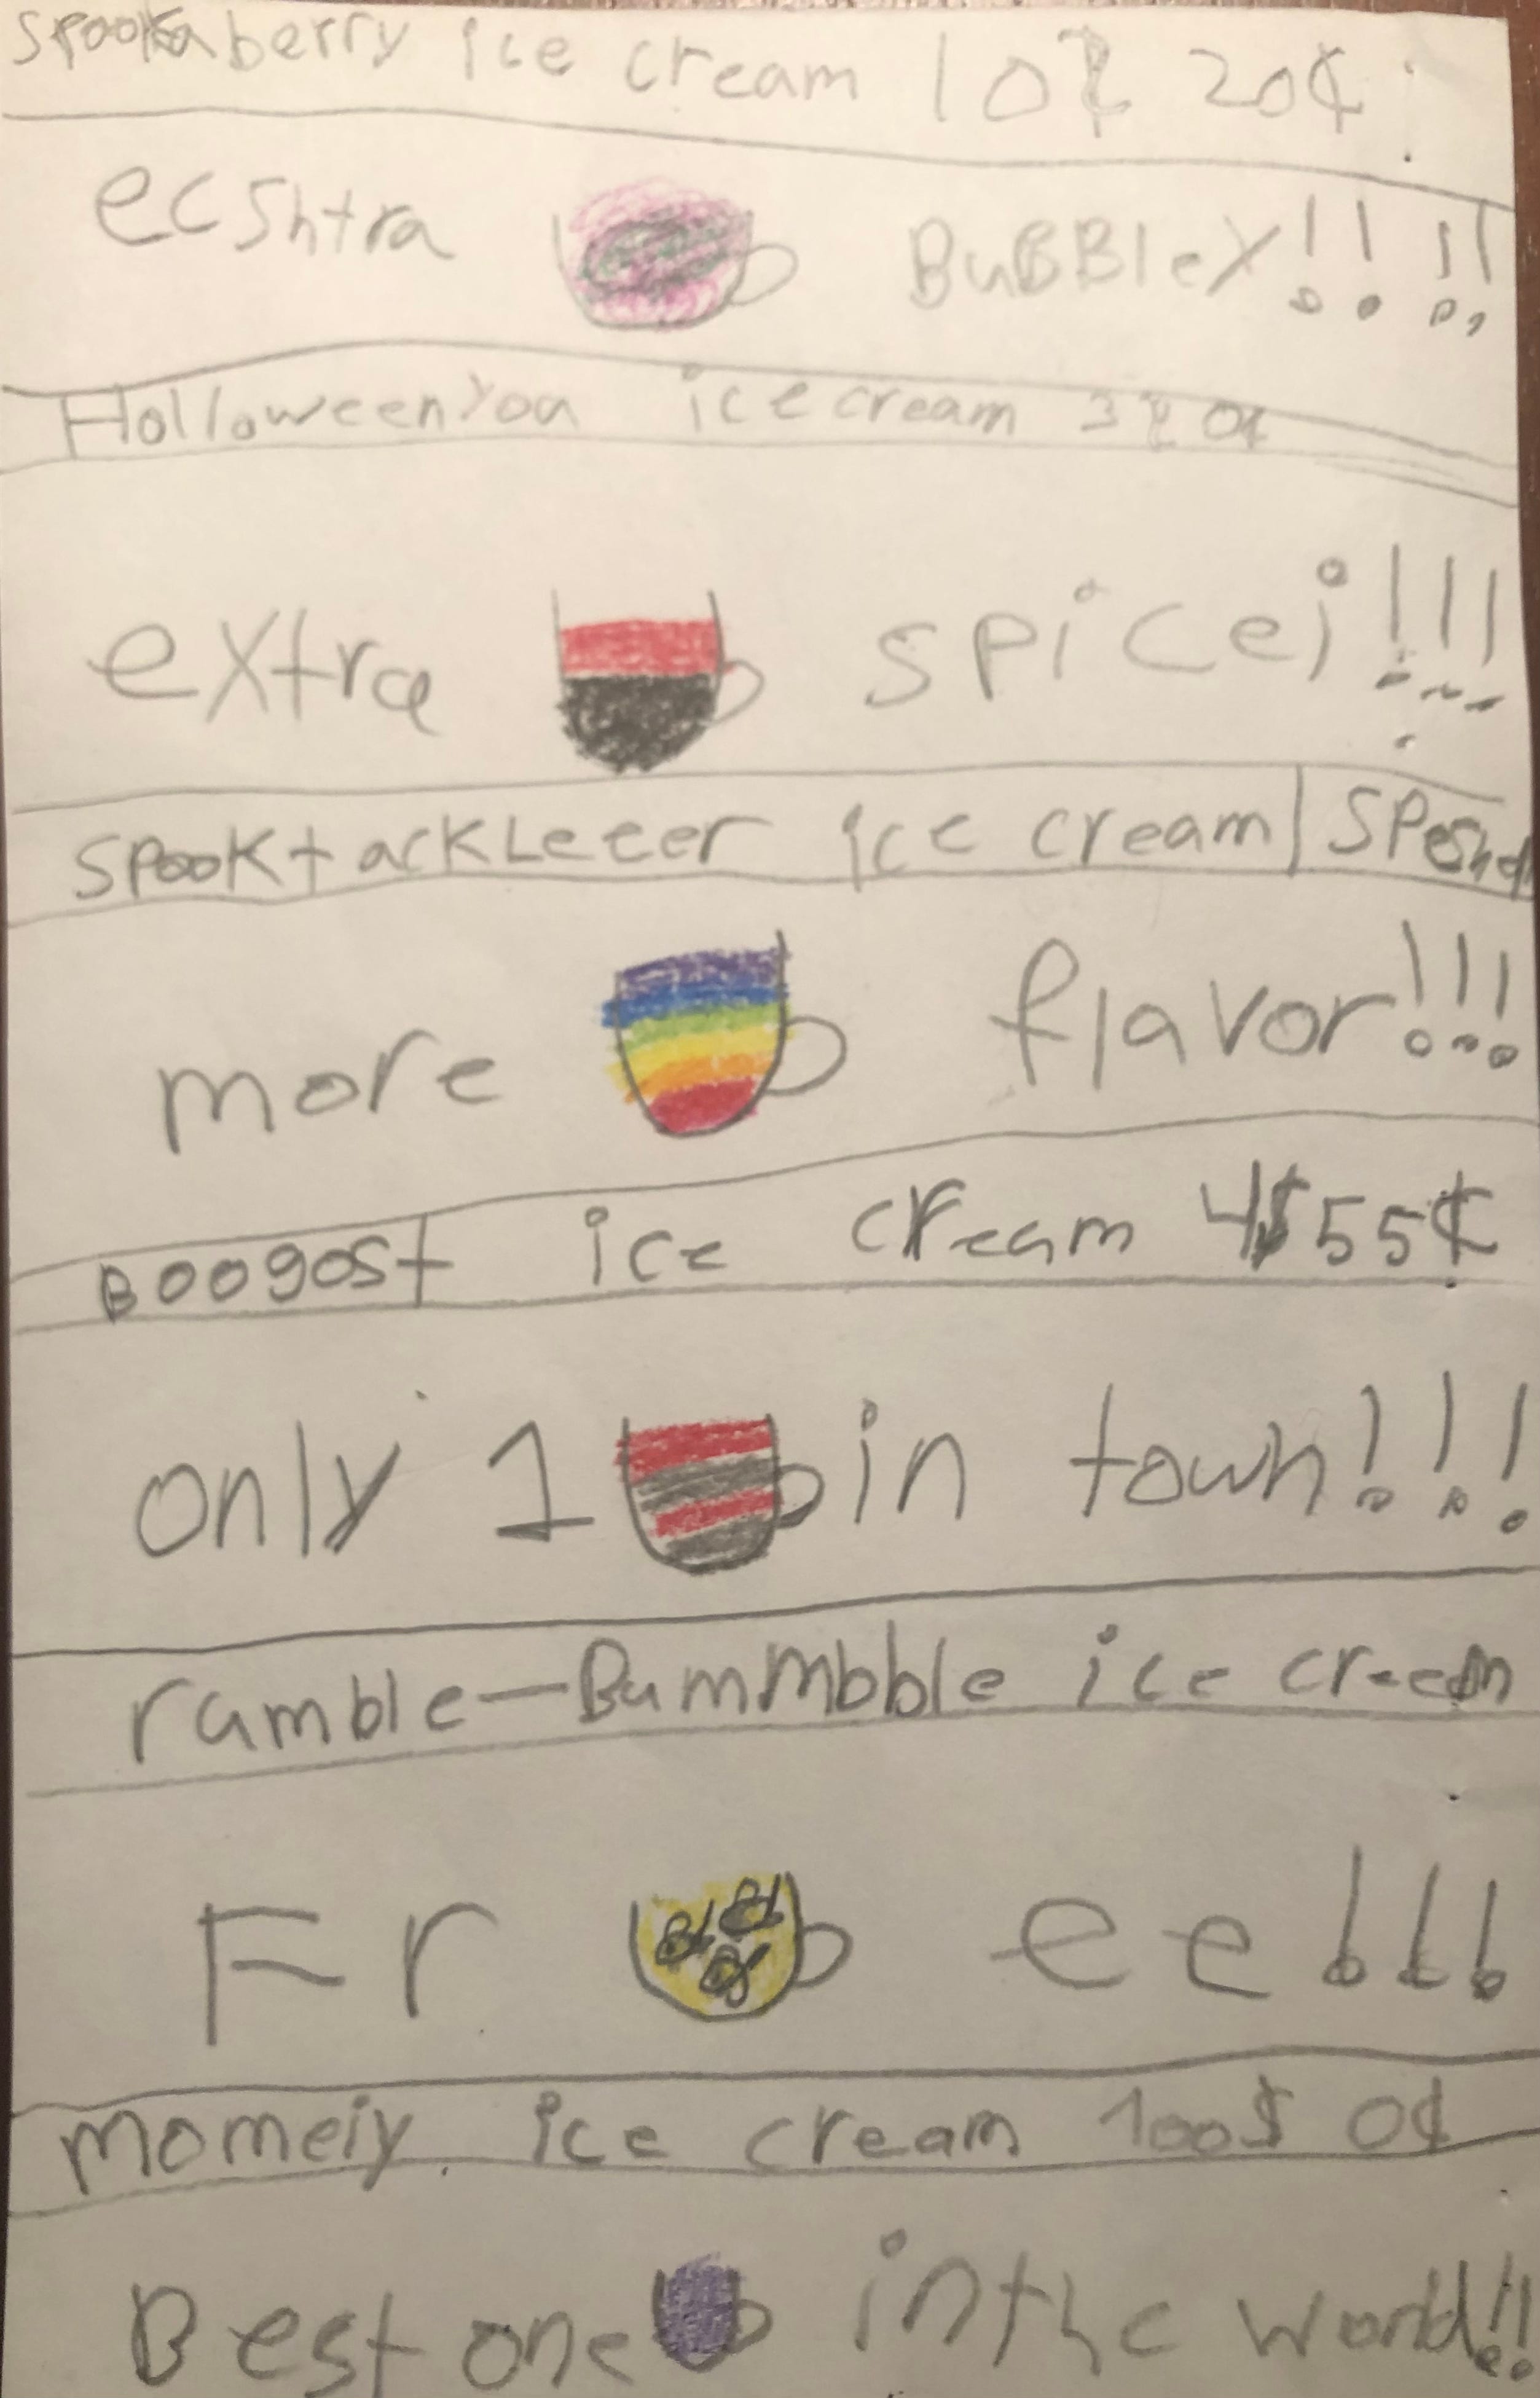 spookaberry ice cream 10$ 20¢
ecshtra BuBBleY!!!!
Holloweenyou ice cream 3$ 0¢
extra spicei!!!
spooktackLeeer ice cream
more flavor!!!
Boogost ice cream 4$ 55¢
only 1 in town!!!
ramble-Bummbble ice cream
Free!!!
momeiy ice cream 100$ 0¢
Best one in the world!!